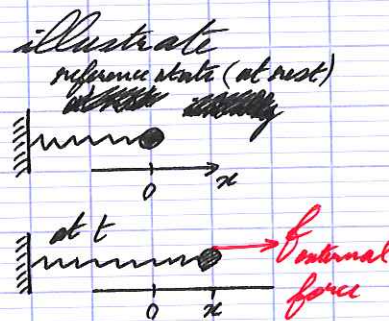 illustrate
reference state (at rest)
0
x
at t
f external
force
0
x